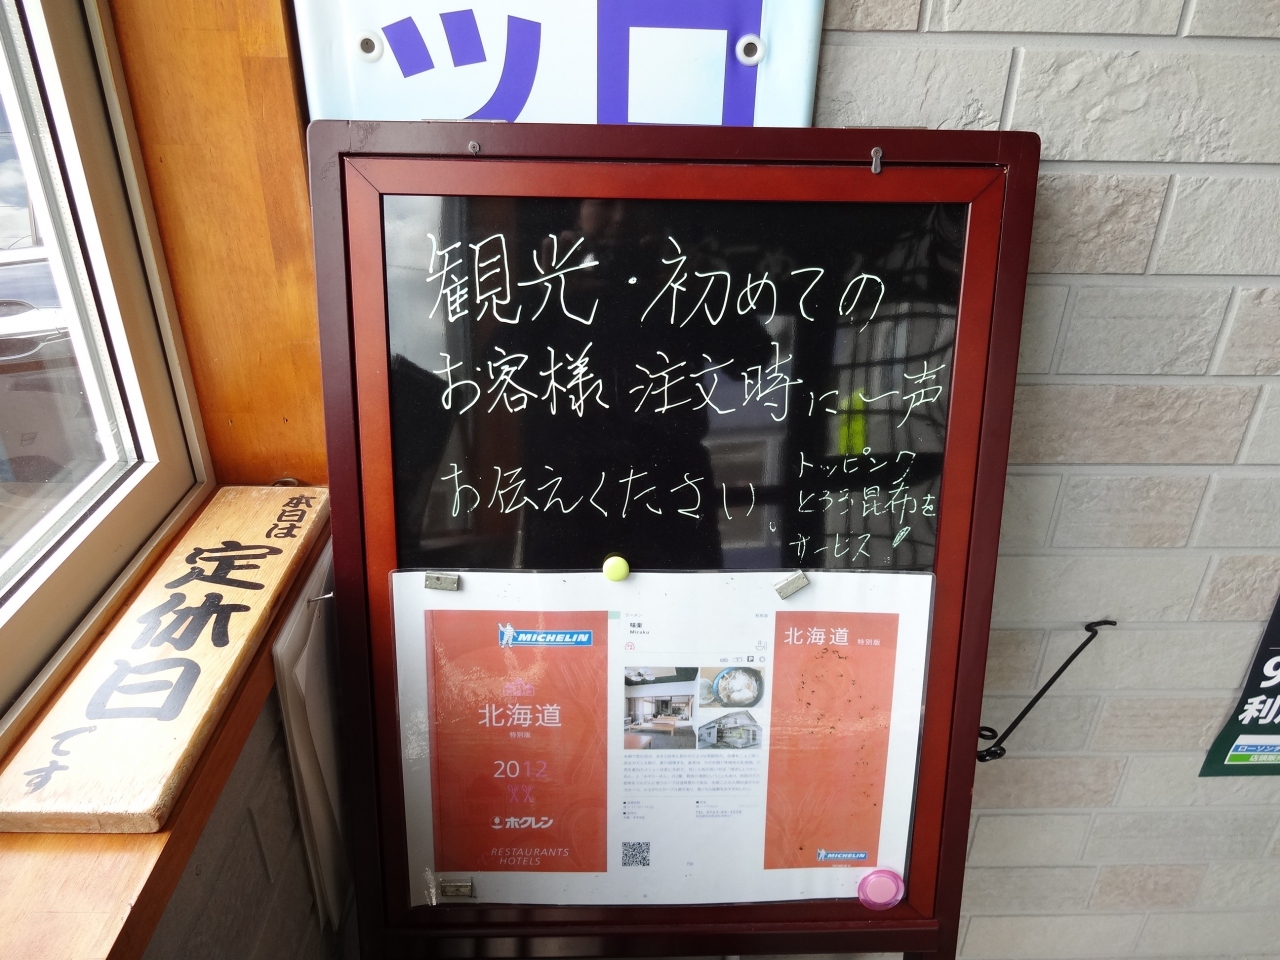 ツロ
観光・初めての
お客様 注文時に一声
お伝えください。
トッピング
とろろ昆布を
サービス
本日は
定休日
です
MICHELIN
北海道
特別版
2012
ホクレン
RESTAURANTS
HOTELS
ラーメン
味楽
Miraku
北海道 特別版
MICHELIN
利
ローソン
店頭販